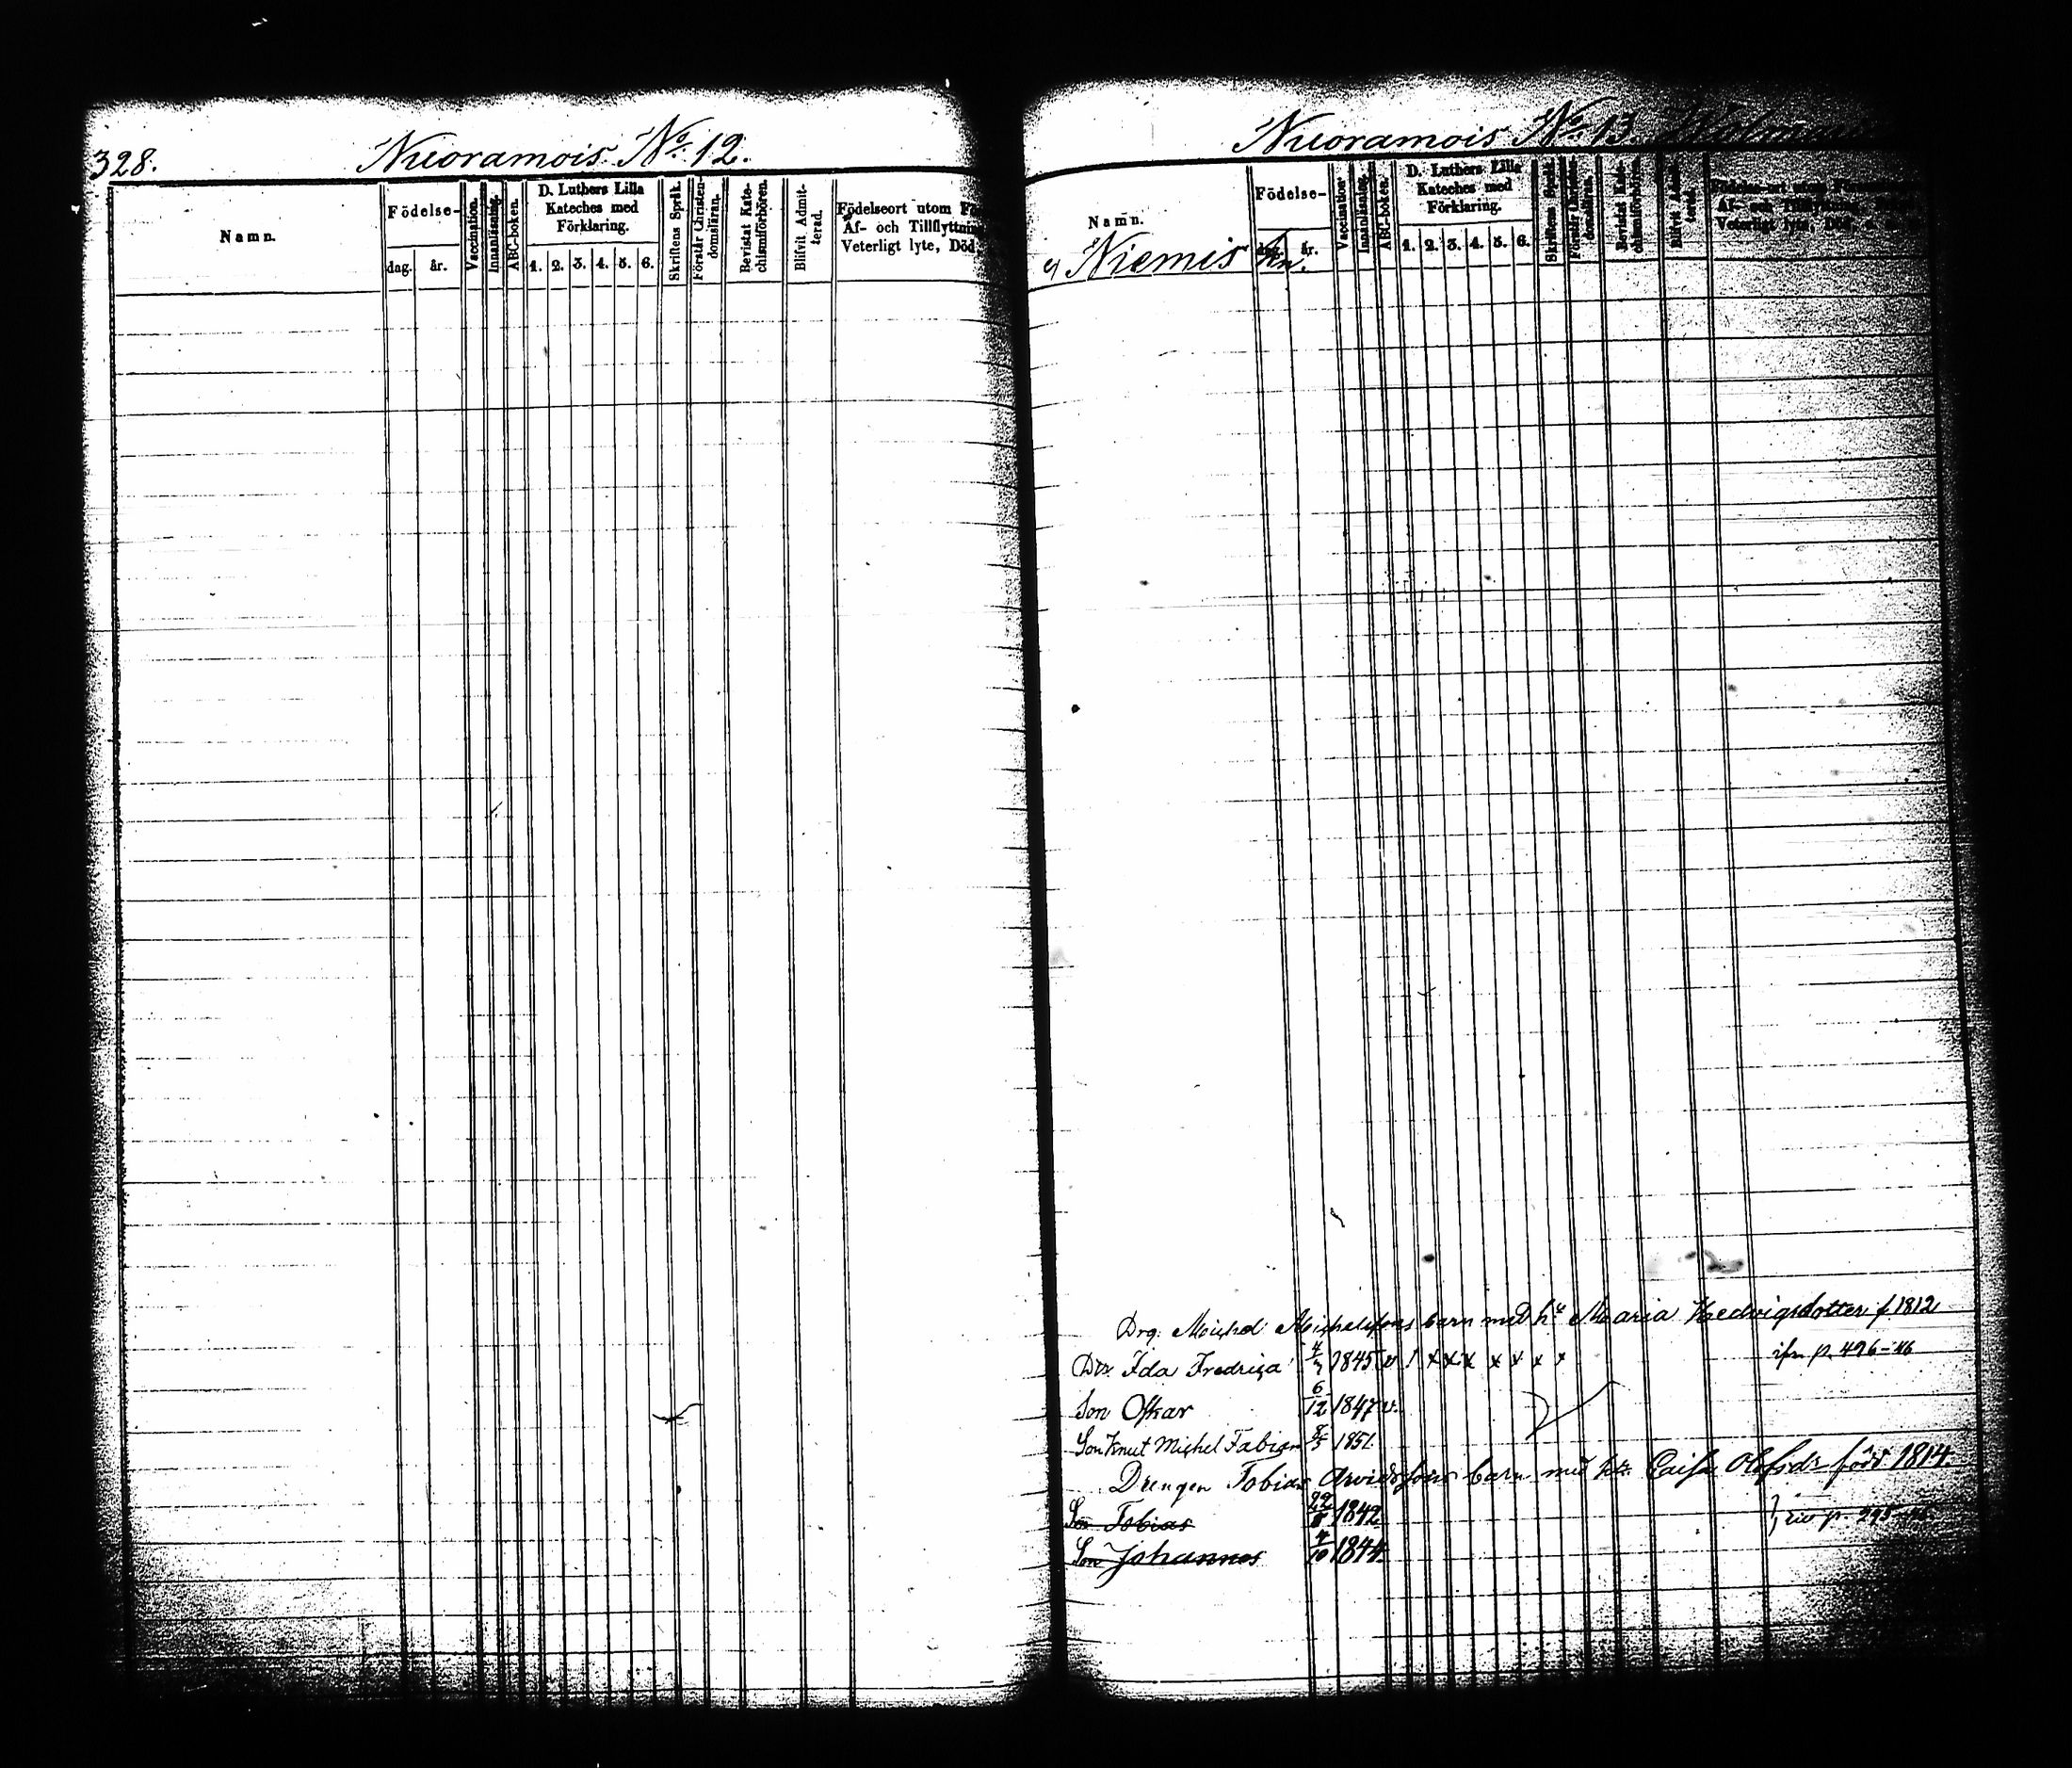 328.
Nuoramois No 12.
Namn.
Födelse-
dag. år.
Vaccination.
Innanläsning.
ABC-boken.
D. Luthers Lilla
Kateches med
Förklaring.
1. 2. 3. 4. 5. 6.
Skriftens Språk.
Förstår Christen-
domsläran.
Bevistat Kate-
chismiförhören.
Blifvit Admit-
terad.
Födelseort utom
Af- och Tillflyttnin
Veterligt lyte, Död
Nuoramois No 13.
Namn.
Niemis
Födelse-
år.
Vaccination
Innanläsning.
ABC-boken.
D. Luthers Lilla
Kateches med
Förklaring.
1. 2. 3. 4. 5. 6.
Skriftens Språk.
Förstår Christen-
domsläran.
Bevistat Kate-
chismiförhören.
Blifvit Admit-
terad.
Födelse-ort utom
Af- och Tillflyttning
Veterligt lyte, Död,
Drg. Michel Michelssons barn med Maria Hedvigsdotter f. 1812
Dtr. Ida Fredrica 4/7 1845 v / x x x x x x x p. 496-46
Son Oskar 6/12 1847 v.
Son Knut Michel Fabian 1851
Drengen Tobias Arvidssons barn med Caisa Olofsdr född 1814.
Son Tobias 22/8 1842
Son Johannes 4/10 1844